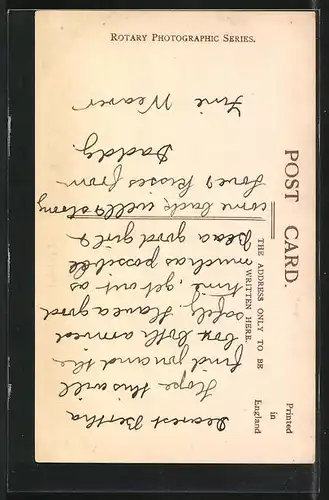 ROTARY PHOTOGRAPHIC SERIES.
POST CARD.
THE ADDRESS ONLY TO BE
WRITTEN HERE.
Printed
in
England
Dearest Bertha
Hope this will
find you and the
box both arrived
safely. Have a good
time, get out as
much as possible
Be a good girl &
come back well & strong
Love & kisses from
Daddy.
Weaver